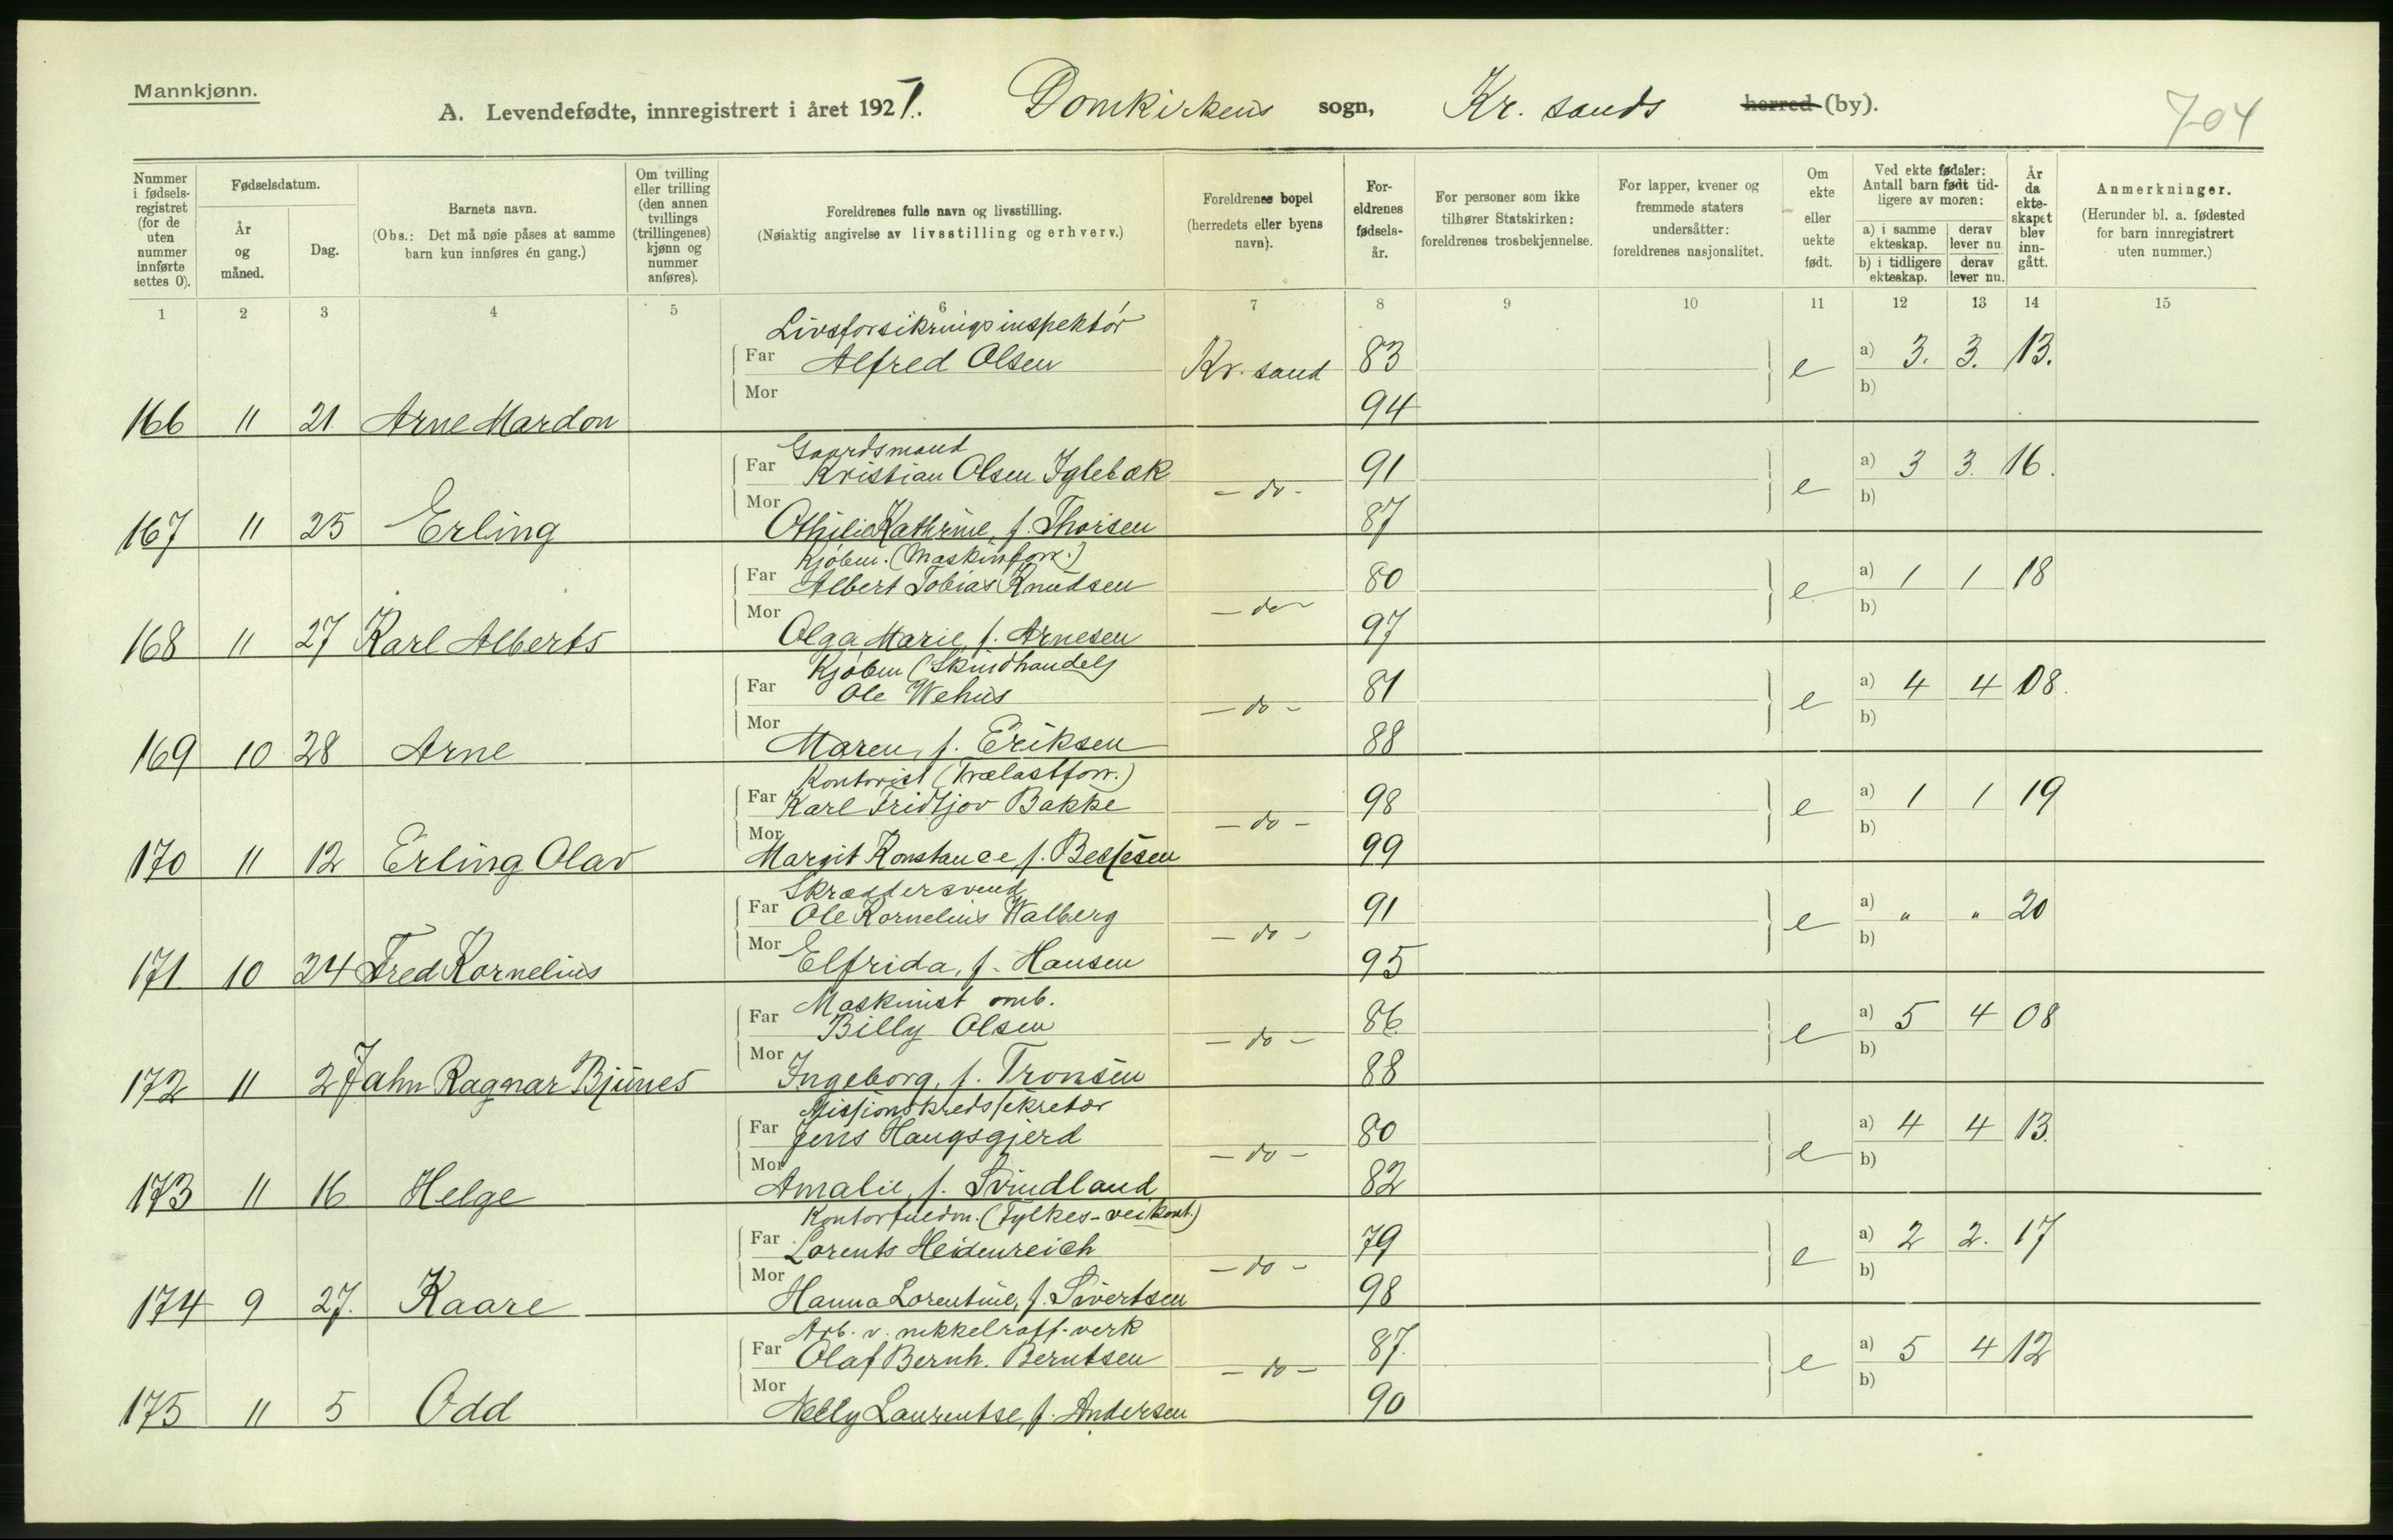 Mannkjønn.
A. Levendefødte, innregistrert i året 1921. Domkirkens sogn, Kr. sands herred (by).
704
Nummer i fødselsregistret (for de uten nummer innførte settes 0).
Fødselsdatum.
År og måned.
Dag.
Barnets navn.
(Obs.: Det må nøie påses at samme barn kun innføres én gang.)
Om tvilling eller trilling (den annen tvillings (trillingenes) kjønn og nummer anføres).
Foreldrenes fulle navn og livsstilling.
(Nøiaktig angivelse av livsstilling og erhverv.)
Foreldrenes bopel
(herredets eller byens navn).
Foreldrenes fødselsår.
For personer som ikke tilhører Statskirken: foreldrenes trosbekjennelse.
For lapper, kvener og fremmede staters undersåtter: foreldrenes nasjonalitet.
Om ekte eller uekte født.
Ved ekte fødsler: Antall barn født tidligere av moren:
a) i samme ekteskap. derav lever nu.
b) i tidligere ekteskap. derav lever nu.
År da ekteskapet blev inngått.
Anmerkninger.
(Herunder bl. a. fødested for barn innregistrert uten nummer.)
1 2 3 4 5 6 7 8 9 10 11 12 13 14 15
Livsforsikringsinspektør
Far Alfred Olsen Kr. sand 83 e a) 3. 3. 13.
Mor b)
166 11 21 Arne Mardon 94
Gaardsmand
Far Kristian Olsen Iglebæk - do - 91 e a) 3 3. 16.
Mor b)
167 11 25 Erling Othilie Kathrine, f. Thorsen 87
Kjøbm. (Maskinforr.)
Far Albert Tobias Knudsen - do - 80 e a) 1 1 18
Mor b)
168 11 27 Karl Alberts Olga Marie, f. Arnesen 97
Kjøbm (Skindhandel)
Far Ole Wehus - do - 81 e a) 4 4 08.
Mor b)
169 10 28 Arne Maren, f. Eriksen 88
Kontorist (Trælastforr.)
Far Karl Fridtjov Bakke - do - 98 e a) 1 1 19
Mor b)
170 11 12 Erling Olav Margit Konstance f. Bessesen 99
Skræddersvend
Far Ole Kornelius Walberg - do - 91 e a) " " 20
Mor b)
171 10 24 Fred Kornelius Elfrida, f. Hansen 95
Maskinist omb.
Far Billy Olsen - do - 86 e a) 5 4 08
Mor b)
172 11 2 Jahn Ragnar Bjünes Ingeborg, f. Tronsen 88
Missionskredssekretær
Far Jens Haugsgjerd - do - 80 e a) 4 4 13.
Mor b)
173 11 16 Helge Amalie, f. Svindland 82
Kontorfuldm. (Fylkes-veikont.)
Far Lorents Heidenreich - do - 79 e a) 2 2. 17
Mor b)
174 9 27. Kaare Hanna Lorentine, f. Sivertsen 98
Arb. v. nikkelraff.verk
Far Olaf Bernh. Berntsen - do - 87. e a) 5 4 12
Mor b)
175 11 5 Odd Nelly Laurentse, f. Andersen 90